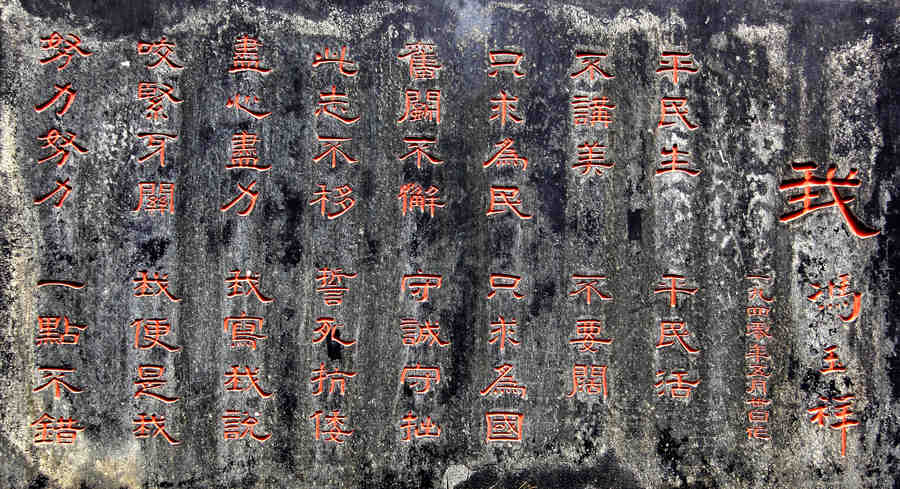 我
馮玉祥
一九四零年五月卅日
平民生 平民活
不講美 不要闊
只求為民 只求為國
奮鬭不懈 守誠守拙
此志不移 誓死抗倭
盡心盡力 我寫我說
咬緊牙關 我便是我
努力努力 一點不錯